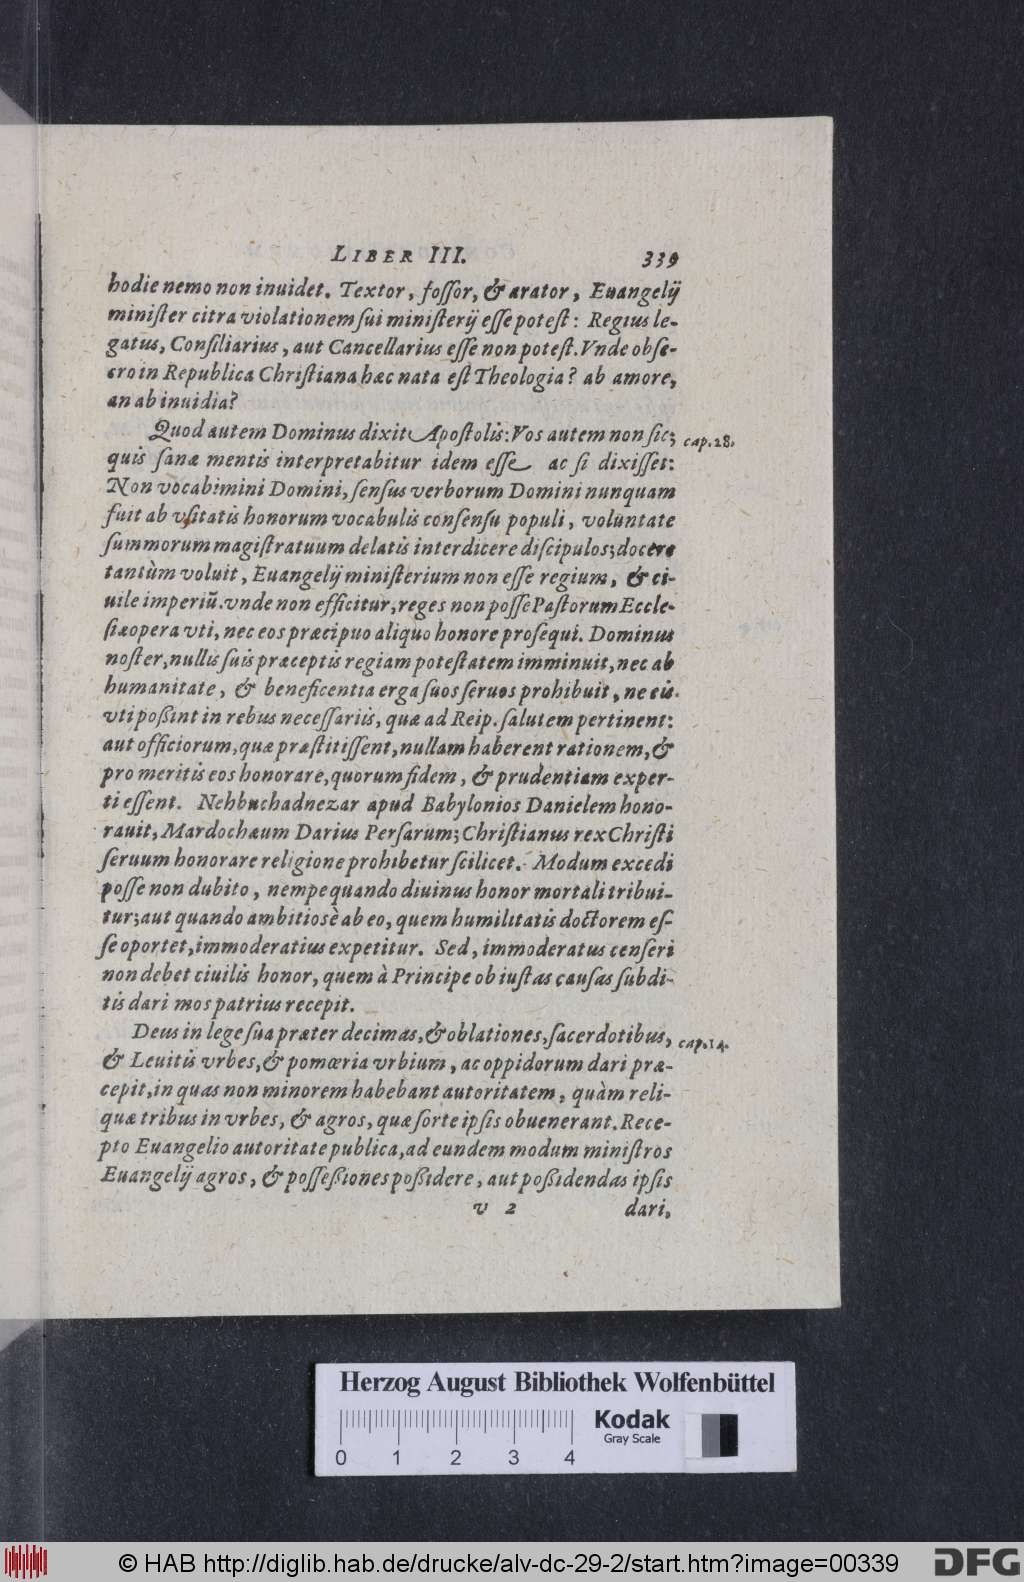 LIBER III. 339
hodie nemo non inuidet. Textor, fossor, & arator, Euangelij
minister citra violationem sui ministerij esse potest: Regius le-
gatus, Consiliarius, aut Cancellarius esse non potest. Vnde obse-
cro in Republica Christiana hæc nata est Theologia? ab amore,
an ab inuidia?
Quod autem Dominus dixit Apostolis: Vos autem non sic; cap. 28.
quis sanæ mentis interpretabitur idem esse ac si dixisset:
Non vocabimini Domini, sensus verborum Domini nunquam
fuit ab vsitatis honorum vocabulis consensu populi, voluntate
summorum magistratuum delatis interdicere discipulos; docere
tantùm voluit, Euangelij ministerium non esse regium, & ci-
uile imperiũ. vnde non efficitur, reges non posse Pastorum Eccle-
siæ opera vti, nec eos præcipuo aliquo honore prosequi. Dominus
noster, nullis suis præceptis regiam potestatem imminuit, nec ab
humanitate, & beneficentia erga suos seruos prohibuit, ne eis
vti poßint in rebus necessariis, quæ ad Reip. salutem pertinent:
aut officiorum, quæ præstitissent, nullam haberent rationem, &
pro meritis eos honorare, quorum fidem, & prudentiam exper-
ti essent. Nehbuchadnezar apud Babylonios Danielem hono-
rauit, Mardochæum Darius Persarum; Christianus rex Christi
seruum honorare religione prohibetur scilicet. Modum excedi
posse non dubito, nempe quando diuinus honor mortali tribui-
tur; aut quando ambitiosè ab eo, quem humilitatis doctorem es-
se oportet, immoderatius expetitur. Sed, immoderatus censeri
non debet ciuilis honor, quem à Principe ob iustas causas subdi-
tis dari mos patrius recepit.
Deus in lege sua præter decimas, & oblationes, sacerdotibus, cap. 14.
& Leuitis vrbes, & pomœria vrbium, ac oppidorum dari præ-
cepit, in quas non minorem habebant autoritatem, quàm reli-
quæ tribus in vrbes, & agros, quæ sorte ipsis obuenerant. Rece-
pto Euangelio autoritate publica, ad eundem modum ministros
Euangelij agros, & possessiones poßidere, aut poßidendas ipsis
v 2 dari,
Herzog August Bibliothek Wolfenbüttel
Kodak
Gray Scale
0 1 2 3 4
© HAB http://diglib.hab.de/drucke/alv-dc-29-2/start.htm?image=00339
DFG